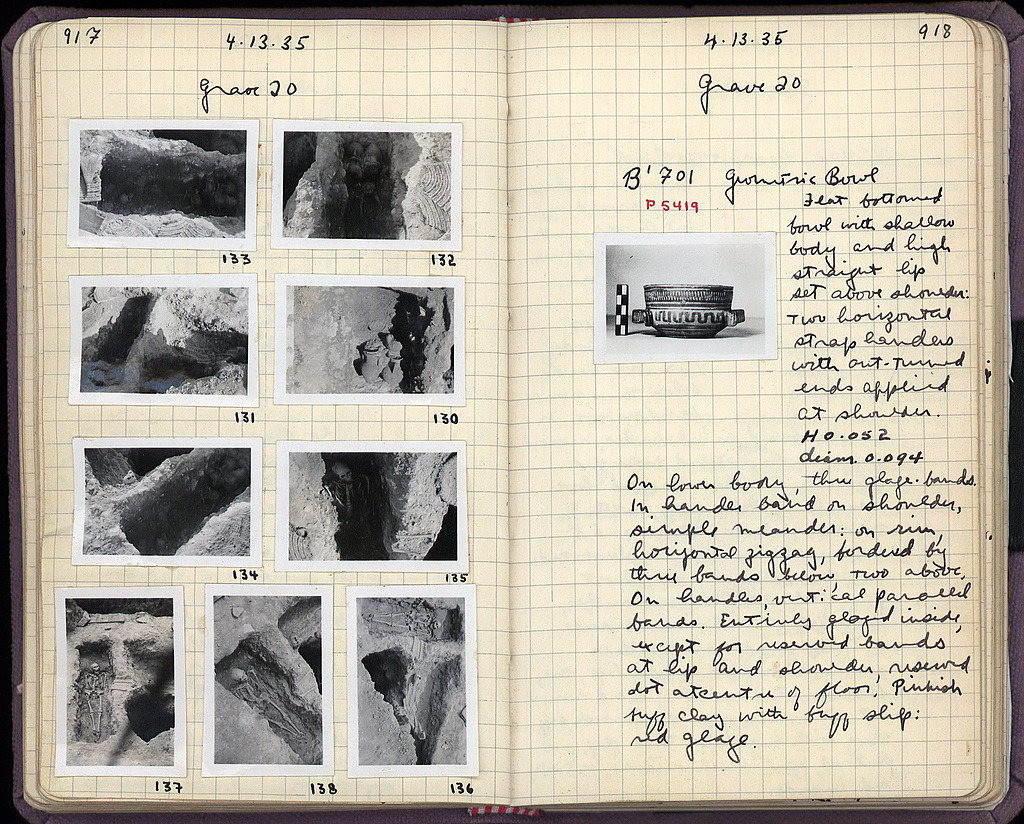 917
4·13·35
Grave 20
133
132
131
130
134
135
137
138
136
918
4·13·35
Grave 20
B' 701 Geometric Bowl
P 5419
Flat bottomed
bowl with shallow
body and high
straight lip
set above shoulder:
Two horizontal
strap handles
with out-turned
ends applied
at shoulder.
H 0.052
diam. 0.094
On lower body, three glaze bands.
In handle band on shoulder,
simple meander: on rim,
horizontal zigzag, bordered by
three bands below two above.
On handles, vertical parallel
bands. Entirely glazed inside,
except for reserved bands
at lip and shoulder, reserved
dot at centre of floor. Pinkish
buff clay with buff slip:
red glaze.